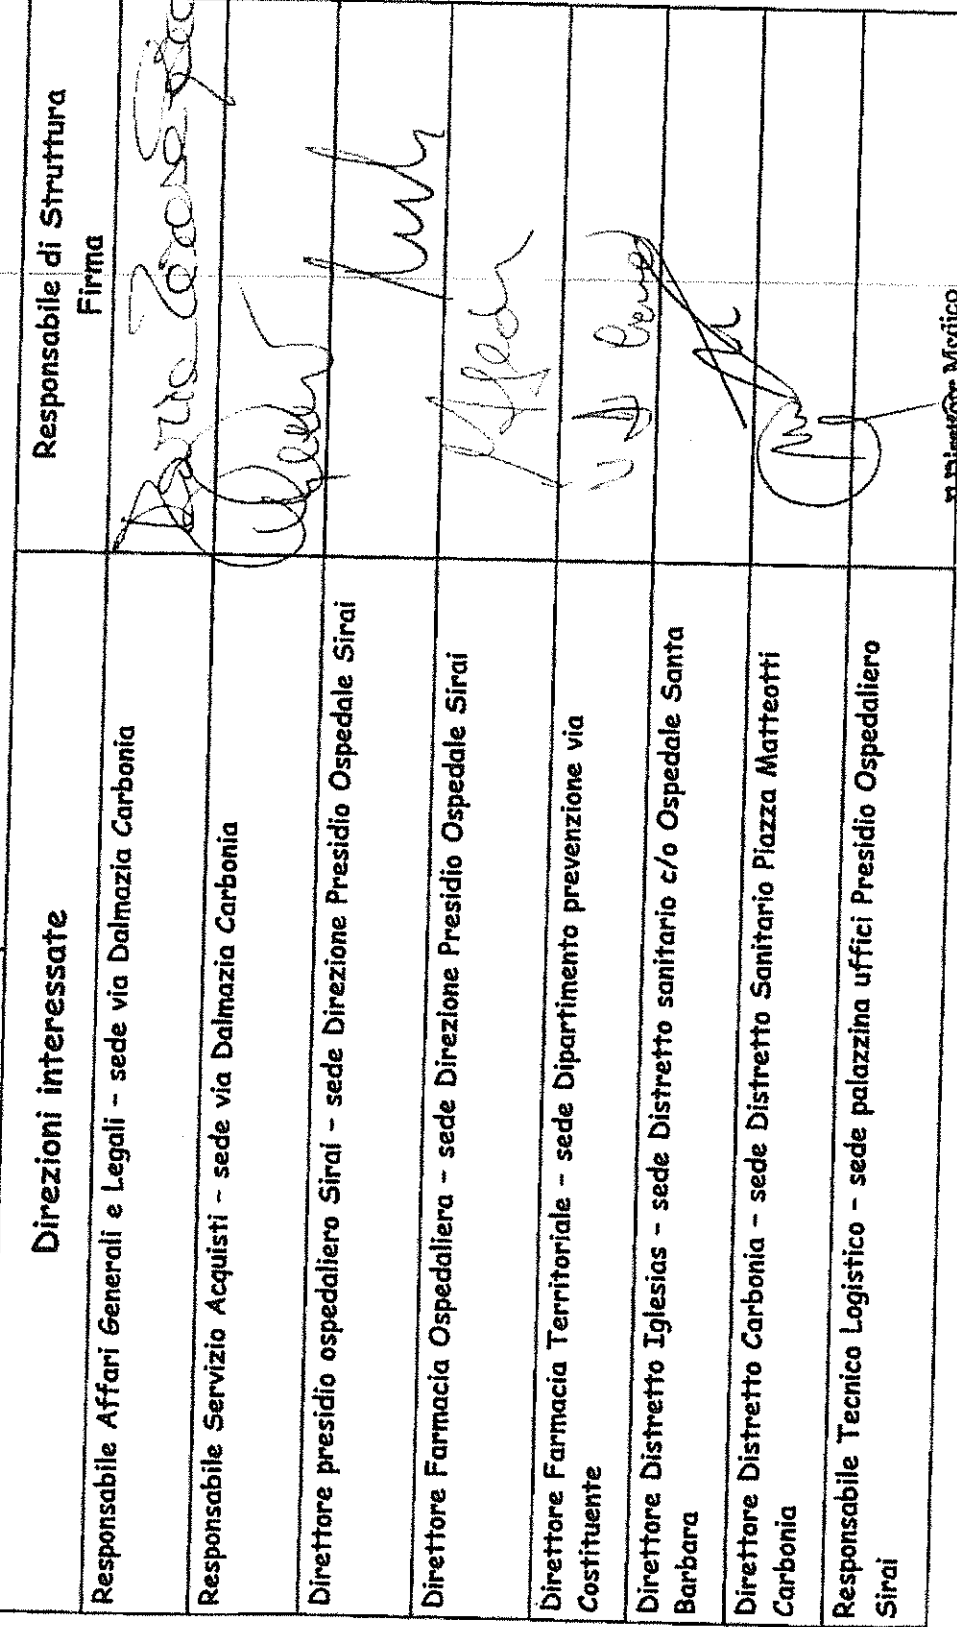 Direzioni interessate
Responsabile di Struttura
Firma
Responsabile Affari Generali e Legali - sede via Dalmazia Carbonia
Responsabile Servizio Acquisti - sede via Dalmazia Carbonia
Direttore presidio ospedaliero Sirai - sede Direzione Presidio Ospedale Sirai
Direttore Farmacia Ospedaliera - sede Direzione Presidio Ospedale Sirai
Direttore Farmacia Territoriale - sede Dipartimento prevenzione via
Costituente
Direttore Distretto Iglesias - sede Distretto sanitario c/o Ospedale Santa
Barbara
Direttore Distretto Carbonia - sede Distretto Sanitario Piazza Matteotti
Carbonia
Responsabile Tecnico Logistico - sede palazzina uffici Presidio Ospedaliero
Sirai
Medico